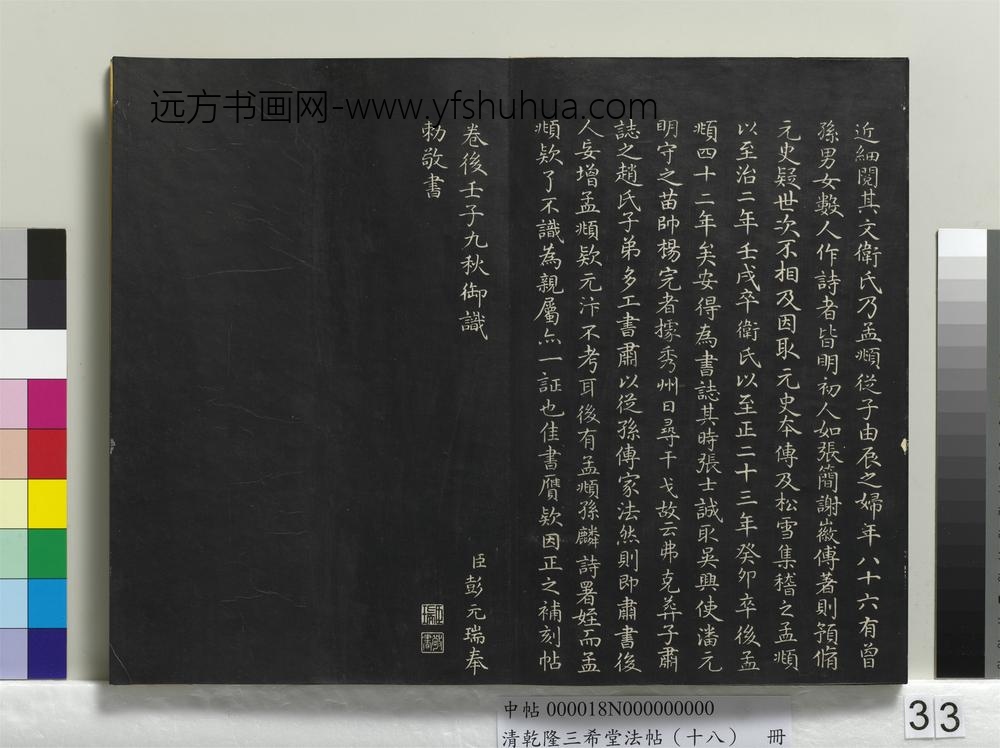 远方书画网-www.yfshuhua.com
近細閱其文衛氏乃孟頫從子由辰之婦年八十六有曾
孫男女數人作詩者皆明初人如張簡謝徽傅著則預脩
元史疑世次不相及因取元史本傳及松雪集稽之孟頫
以至治二年壬戌卒衛氏以至正二十三年癸卯卒後孟
頫四十二年矣安得為書誌其時張士誠取吳興使潘元
明守之苗帥楊完者據秀州日尋干戈故云弗克葬子肅
誌之趙氏子弟多工書肅以從孫傳家法然則即肅書後
人妄增孟頫欵元汴不考耳後有孟頫孫麟詩署姪而孟
頫欵了不識為親屬亦一証也佳書贋欵因正之補刻帖
卷後壬子九秋御識
臣彭元瑞奉
勅敬書
中帖 000018N000000000
清乾隆三希堂法帖（十八） 冊
33